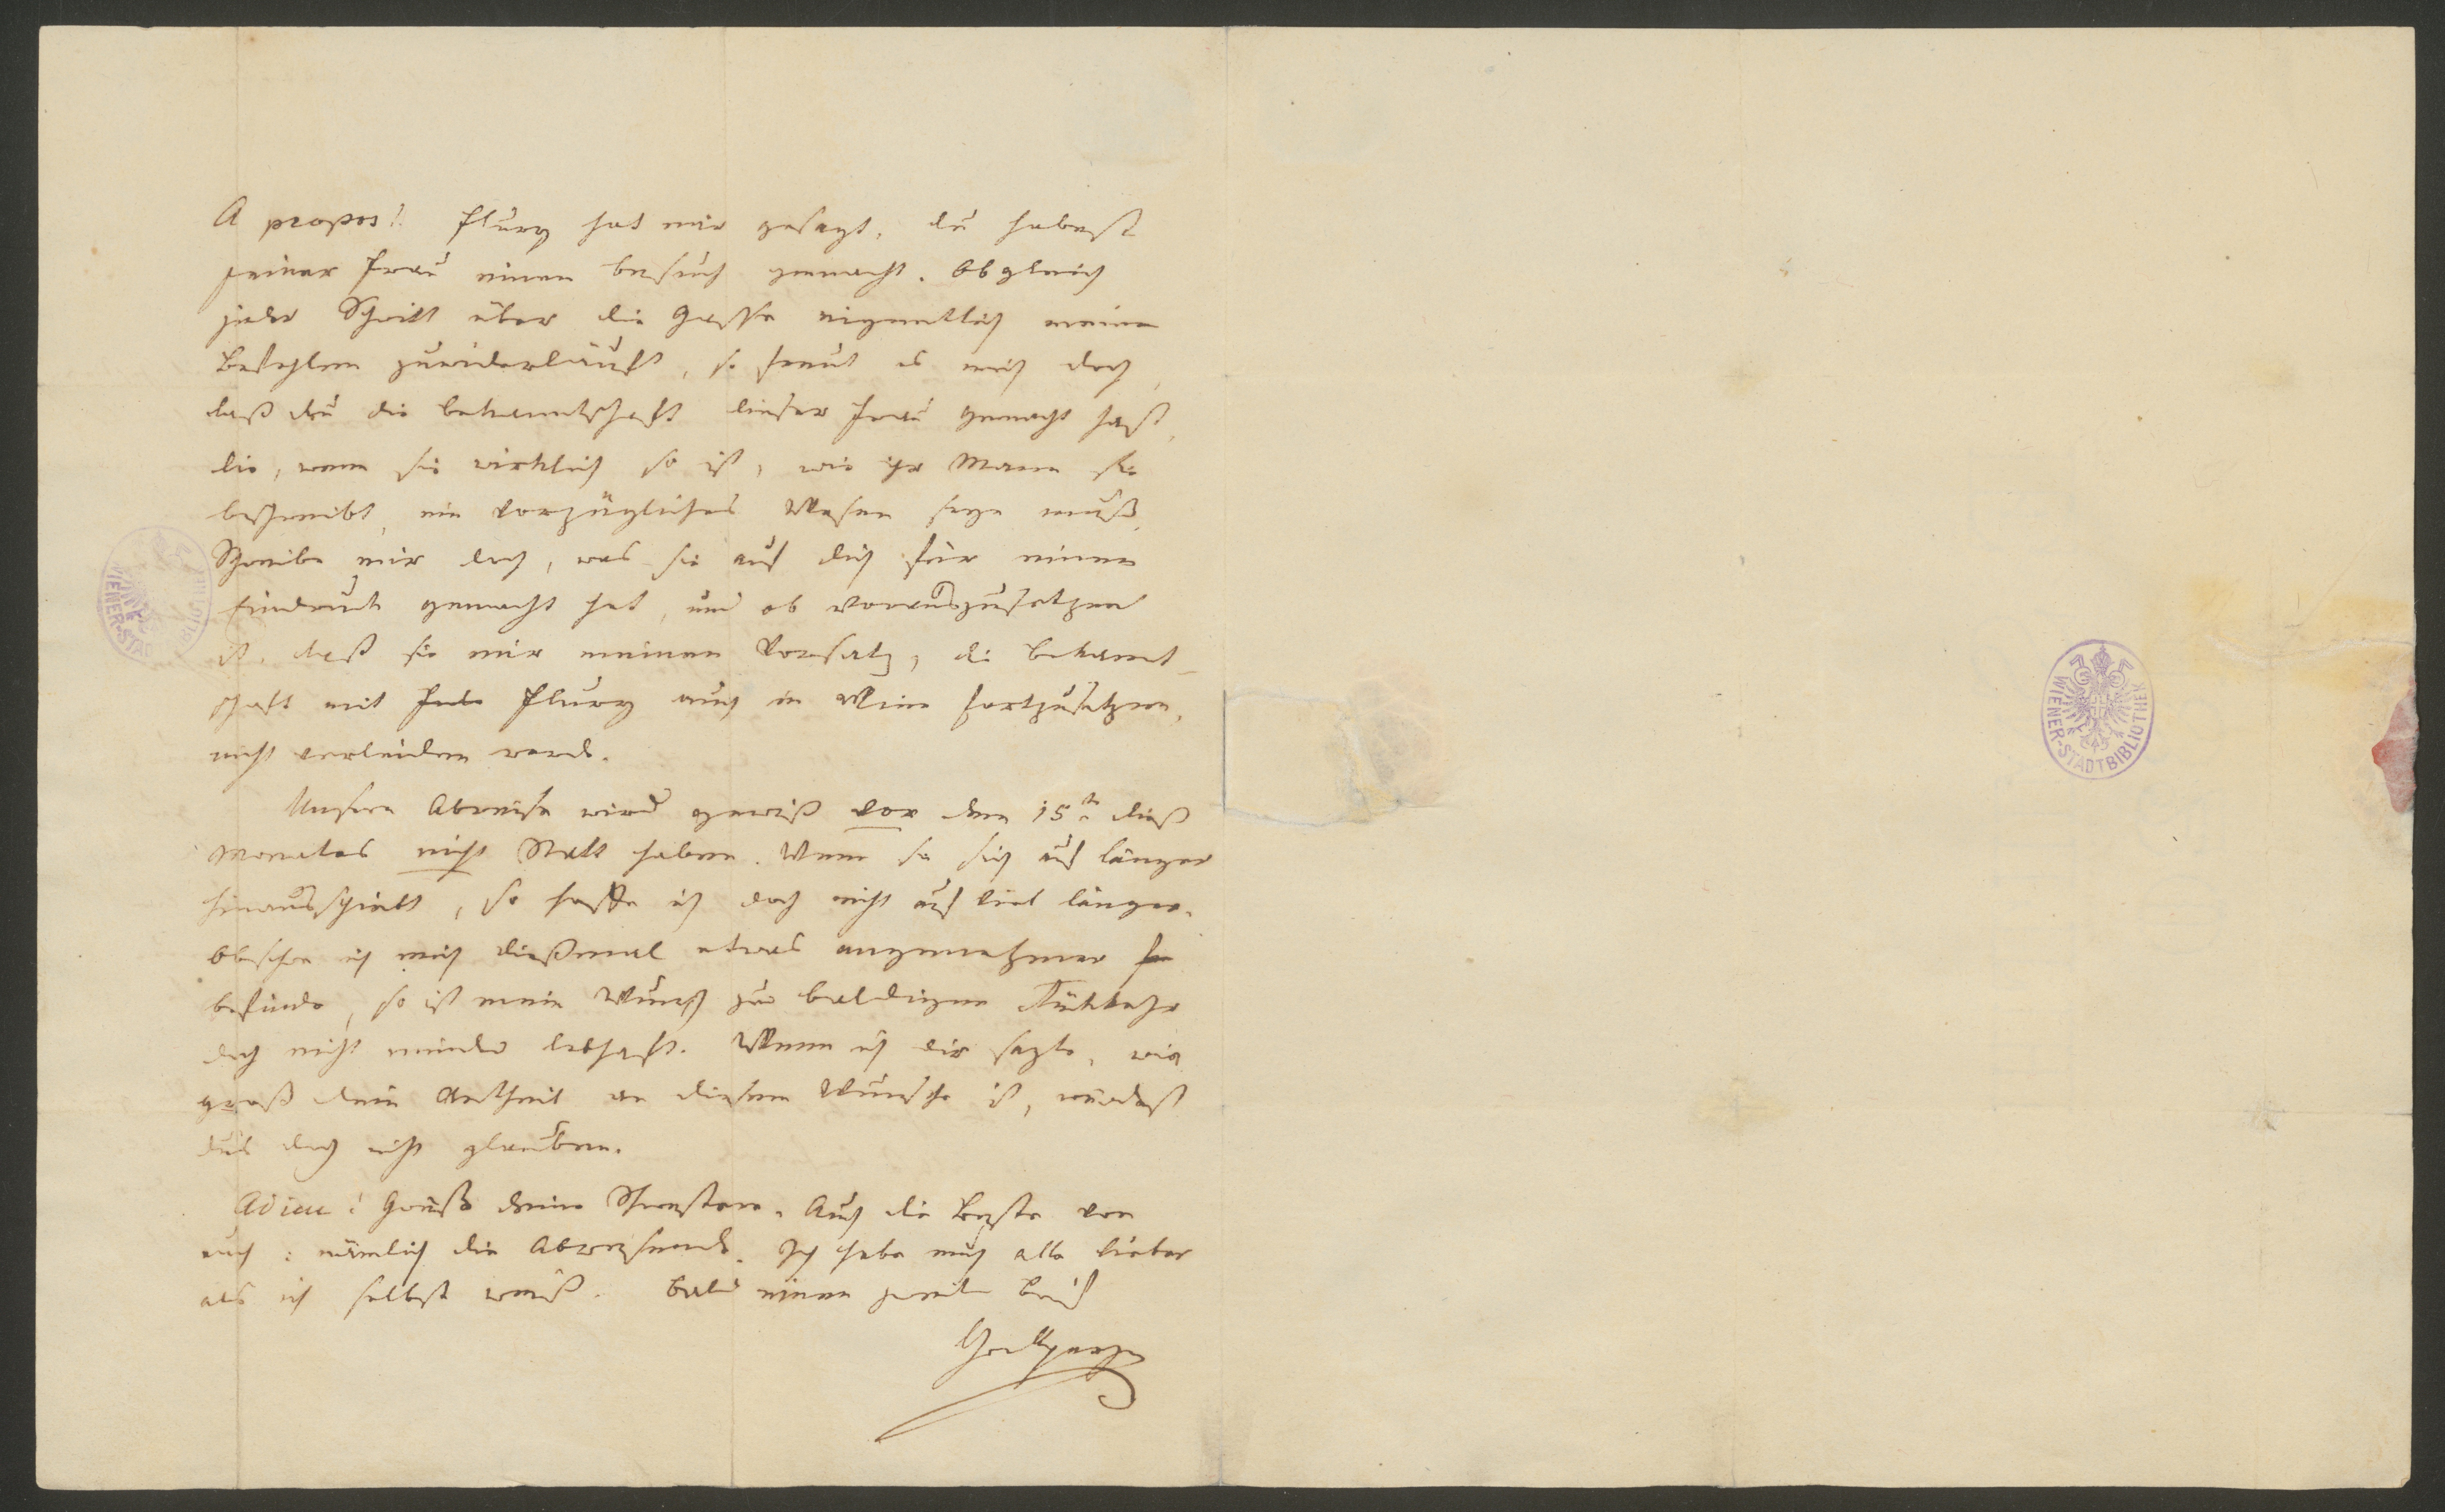 A propos! Flury hat mir gesagt, du habest
seiner Frau einen Besuch gemacht. Obgleich
jeder Schritt über die Gasse eigentlich meinen
Befehlen zuwiderläuft, so freut es mich doch,
daß du die Bekanntschaft dieser Frau gemacht hast,
die, wenn sie wirklich so ist, wie ihr Mann sie
beschreibt, ein vorzügliches Wesen seyn muß.
Schreibe mir doch, was sie auf dich für einen
Eindruck gemacht hat, und ob vorauszusetzen
ist, daß sie mir meinen Vorsatz, die Bekannt-
schaft mit Flury auch in Wien fortzusetzen,
nicht verleiden werde.
Unsere Abreise wird gewiß vor dem 15t dieß
Monates nicht Statt haben. Wenn sie sich auf länger
hinausschiebt, so hoffe ich doch nicht auf viel länger.
Obschon ich mich dießmal etwas angenehmer
befinde, so ist mein Wunsch zur baldigen Rückkehr
doch nicht minder lebhaft. Wenn ich dir sagte, wie
groß dein Antheil an diesem Wunsche ist, würdest
dus doch nicht glauben.
Adieu! Grüß deine Schwestern. Auch die Beste von
euch: nämlich die Abwesende. Ich habe euch alle lieber
als ich selbst weiß. Bald einen zweiten Brief
Grillparzer
WIENER-STADTBIBLIOTHEK
WIENER-STAD